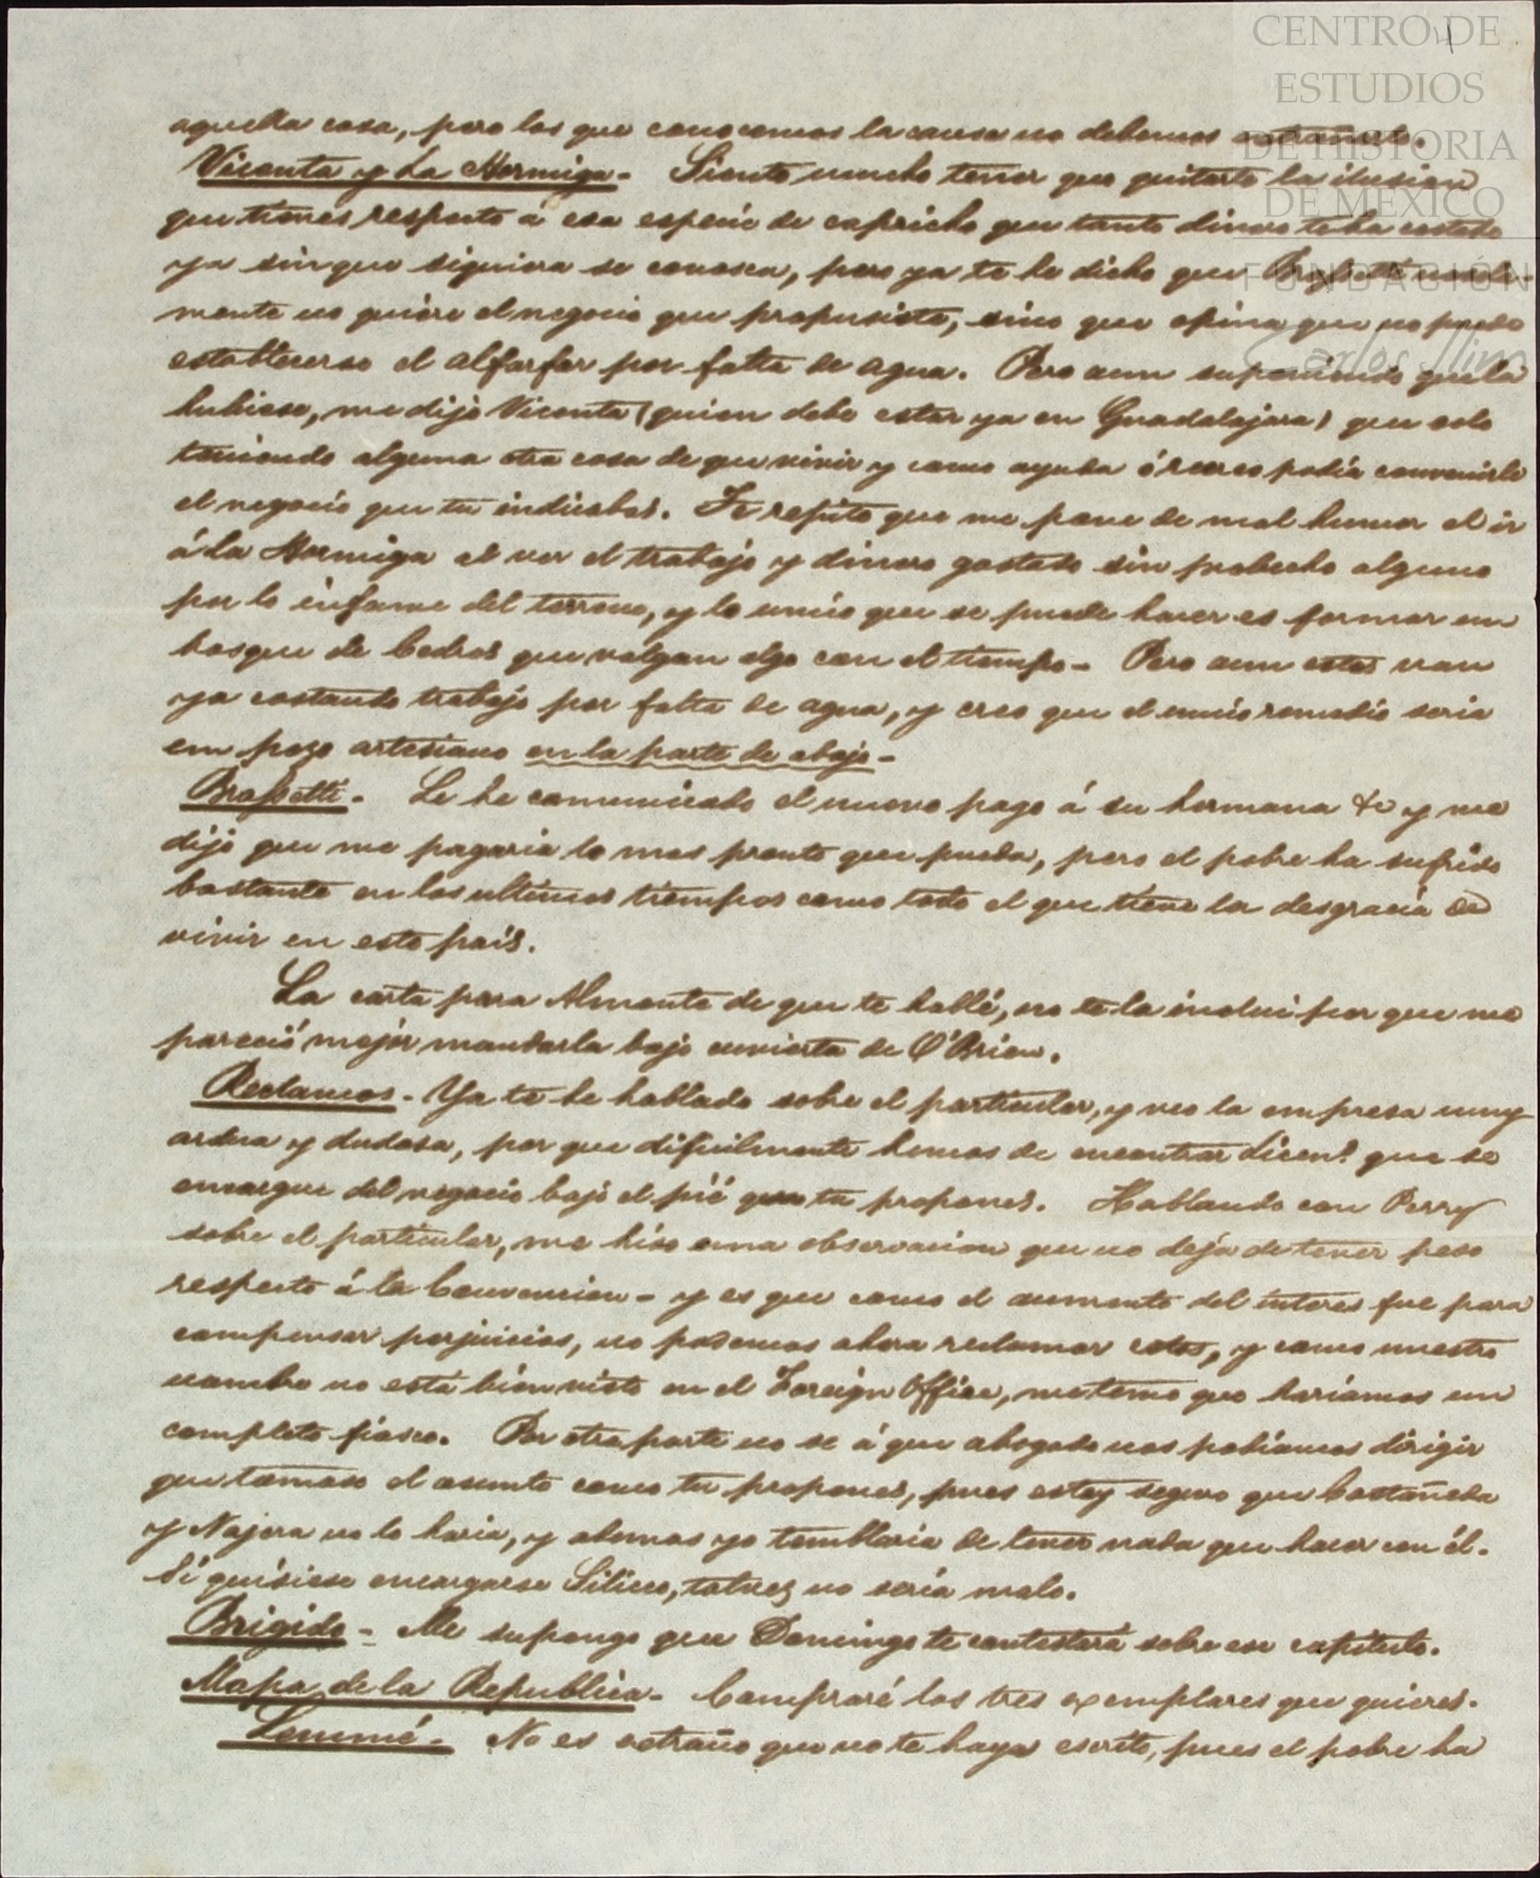 CENTRO DE
ESTUDIOS
DE HISTORIA
DE MEXICO
FUNDACIÓN
Carlos Slim
4
aquella cosa, pero los que conocemos la causa no debemos extrañarlo.
Vicenta y La Hormiga - Siento mucho tener que quitarte la ilusion
que tienes respecto á esa especie de capricho que tanto dinero te ha costado
ya sin que siquiera se conosca, pero ya te he dicho que Brassetti no sola-
mente no quiere el negocio que propusiste, sino que opina que no puede
establecerse el alfarfar por falta de agua. Pero aun suponiendo que la
hubiese, me dijo Vicenta (quien debe estar ya en Guadalajara) que solo
teniendo alguna otra cosa de que vivir y como ayuda ó recurso podia convenirle
el negocio que tu indicabas. Te repito que me pone de mal humor el ir
á la Hormiga al ver el trabajo y dinero gastado sin probecho alguno
por lo infame del terreno, y lo unico que se puede hacer es formar un
bosque de Cedros que valgan algo con el tiempo - Pero aun estos van
ya costando trabajo por falta de agua, y creo que el unico remedio seria
un pozo artesiano en la parte de abajo -
Brassetti - Le he comunicado el nuevo pago á su hermana &c y me
dijo que me pagaria lo mas pronto que pueda, pero el pobre ha sufrido
bastante en los ultimos tiempos como todo el que tiene la desgracia de
vivir en este país.
La carta para Almonte de que te hablé, no te la inclui por que me
pareció mejor mandarla bajo cuvierta de O'Brien.
Reclamos - Ya te he hablado sobre el particular, y veo la empresa muy
ardua y dudosa, por que dificilmente hemos de encontrar Licend. que se
encargue del negocio bajo el pié que tu propones. Hablando con Perry
sobre el particular, me hiso una observacion que no deja de tener peso
respecto á la Convencion - y es que como el aumento del interes fue para
compensar perjuicios, no podemos ahora reclamar estos, y como nuestro
nombre no está bien visto en el Foreign Office, me temo que hariamos un
completo fiasco. Por otra parte no se á que abogado nos podiamos dirigir
que tomase el asunto como tu propones, pues estoy seguro que Castañeda
y Najera no lo haria, y ademas yo temblaria de tener nada que hacer con él.
Si quisiese encargarse Siliceo, talvez no sería malo.
Brigido - Me supongo que Domingo te contestará sobre ese capitulo.
Mapa de la Republica - Compraré los tres exemplares que quieres.
Lemmé - No es extraño que no te haya escrito, pues el pobre ha